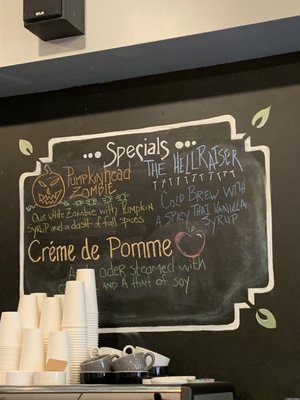 Specials
Pumpkinhead
Zombie
Our White Zombie with Pumpkin
Syrup and a dash of fall spices
The Hellraiser
Cold Brew with
a spicy Thai Vanilla
Syrup
Créme de Pomme
cider steamed with
and a hint of soy